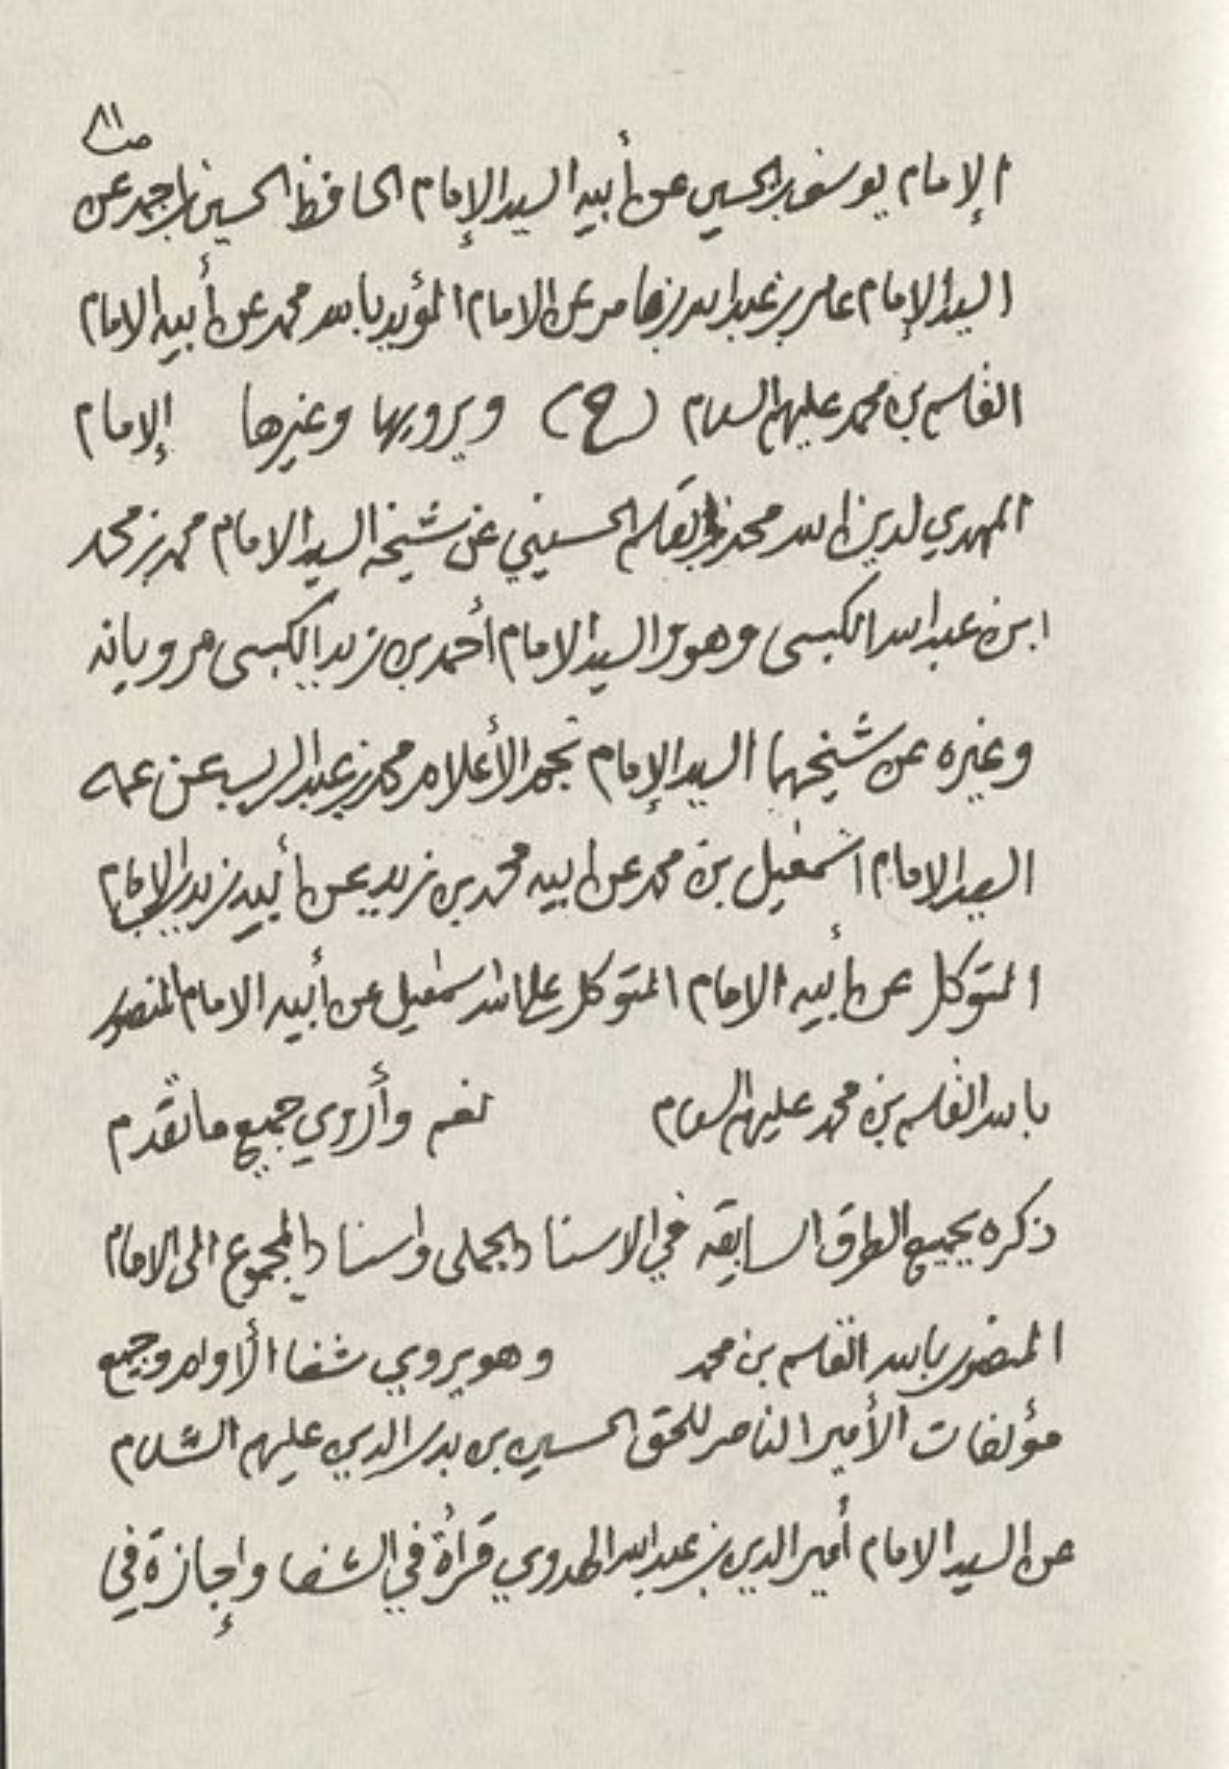 ص٨١
الإمام يوسف بن الحسين عن أبيه السيد الإمام الحافظ الحسين بن أحمد عن
السيد الإمام عامر بن عبدالله بن عامر عن الامام المؤيد بالله محمد عن أبيه الامام
القاسم بن محمد عليهم السلام (ح) ويرويها وغيرها الإمام
المهدي لدين الله محمد بن القاسم الحسيني عن شيخه السيد الامام محمد بن محمد
ابن عبدالله الكبسي وهو والسيد الامام أحمد بن زيد الكبسي مروياته
وغيره عن شيخهما السيد الإمام نجم الأعلام محمد بن عبدالرب عن عمه
السيد الامام اسمعيل بن محمد عن ابيه محمد بن زيد عن أبيه زيد بن الامام
المتوكل عن أبيه الامام المتوكل على الله اسمعيل عن أبيه الامام المنصور
بالله القاسم بن محمد عليهم السلام نعم وأروي جميع ما تقدم
ذكره بجميع الطرق السابقة في الاسناد الجملي واسناد المجموع الى الامام
المنصور بالله القاسم بن محمد وهو يروي شفا الأوام وجميع
مؤلفات الأمير الناصر للحق الحسين بن بدر الدين عليهم السلام
عن السيد الامام أمير الدين بن عبدالله الهدوي قرأة في الشفا وإجازة في